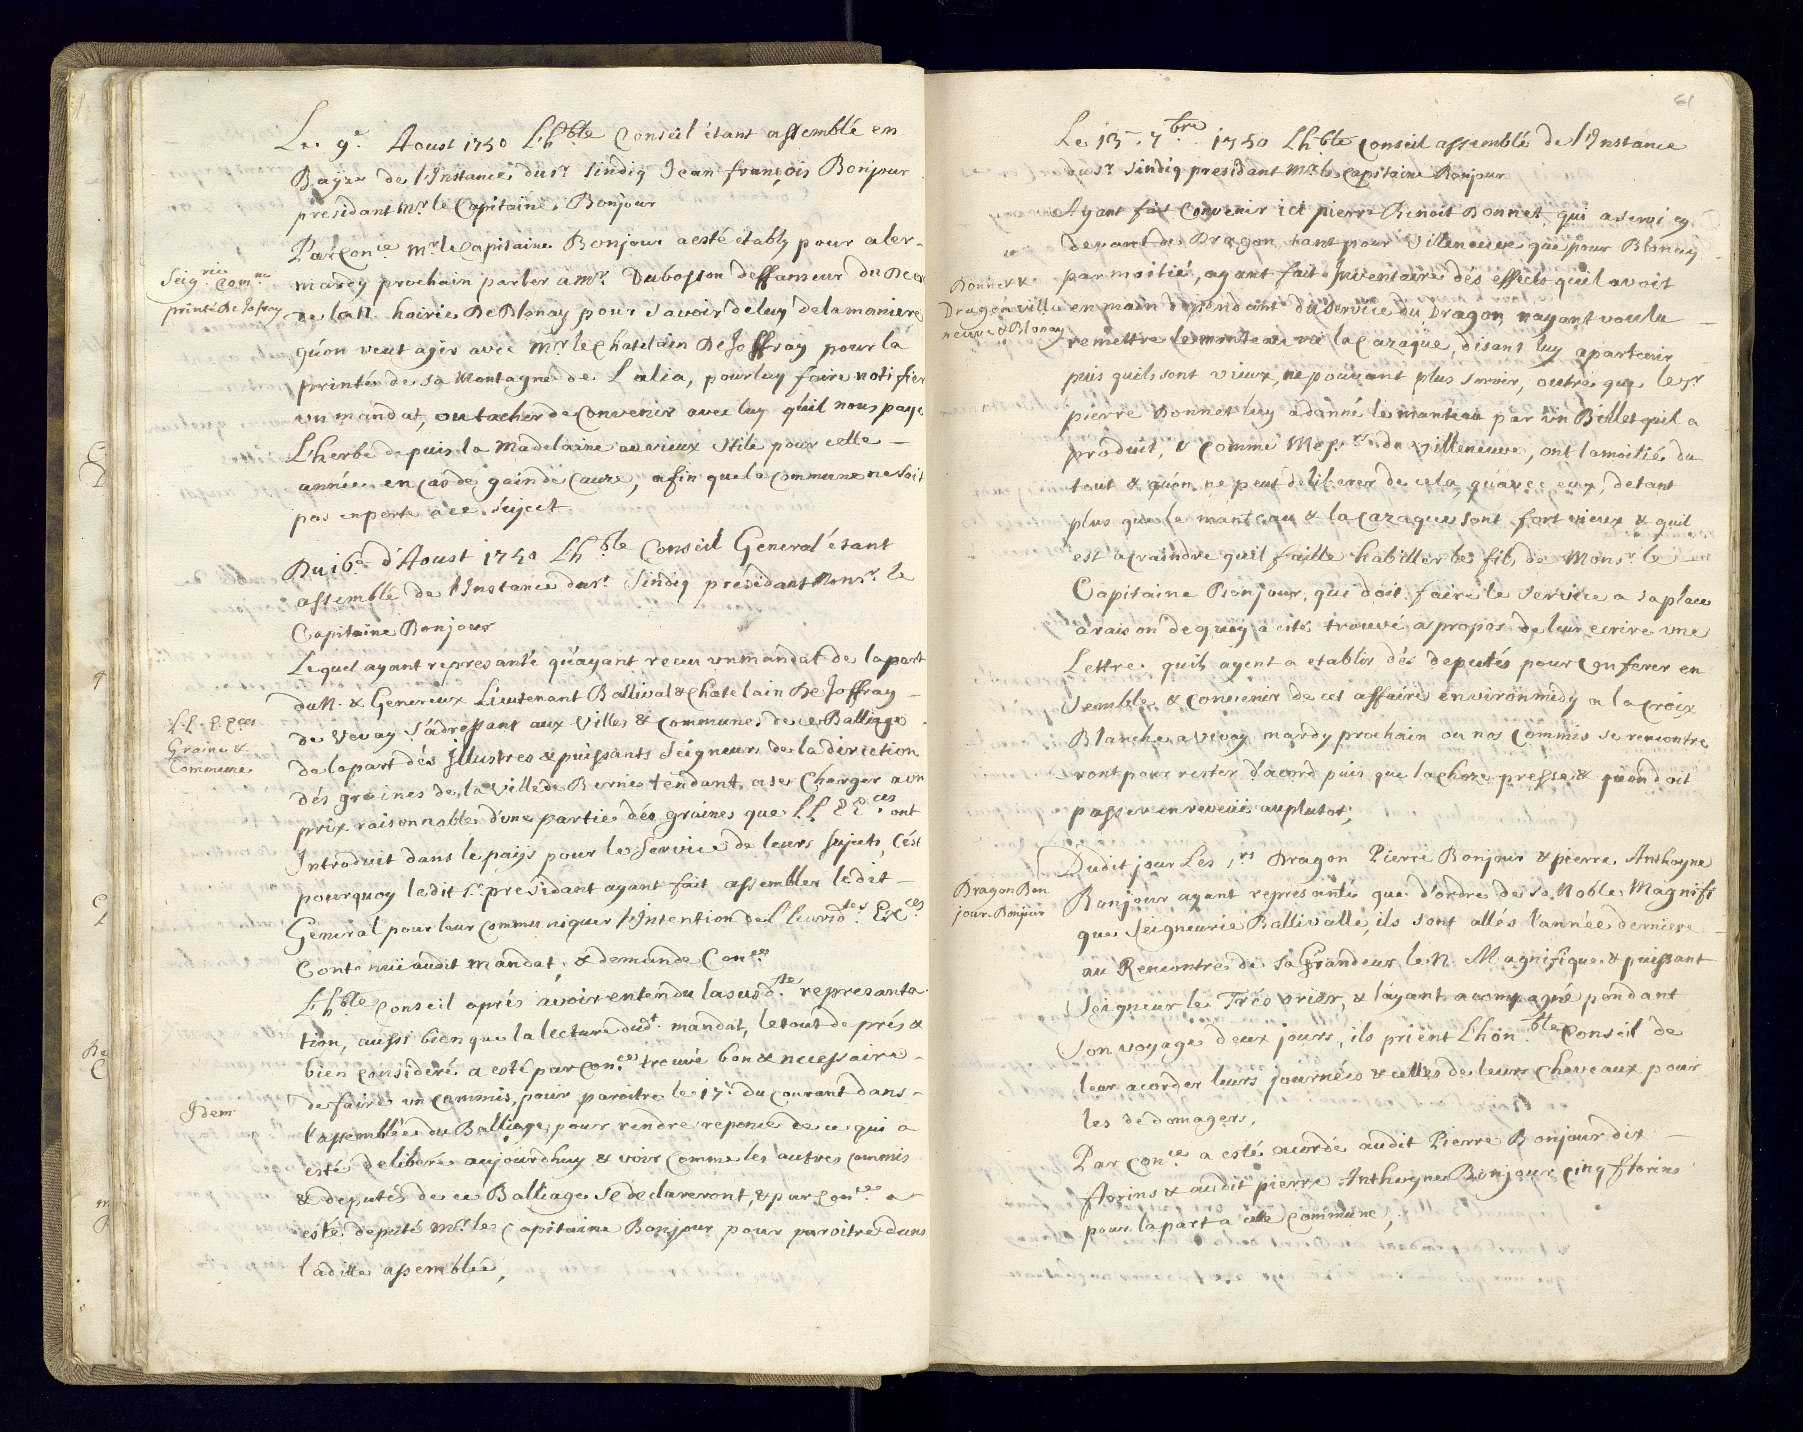 Le 9.e Aoust 1750 Lh.ble Conseil êtant assemblé en
Bayze de l'Instance du sr. Sindiq Jean françois Bonjour
presidant Mr. le Capitaine Bonjour
Par con.ce Mr. le Capitaine Bonjour a esté êtably pour aler
Seig.rie Com.ne
printé De Jofrey
mardy prochain parler a Mr. Dubosson deffanseur du
de la N. hoirie De Blonay pour savoir de luy de la maniere
qu'on veut agir avec Mr. le Chatelain De Joffray pour la
printée de sa Montagne de Lalia, pour luy faire notifier
un mandat, ou tacher de Convenir avec luy qu'il nous paye
L'herbe depuis la Madelaine au vieux stile pour cette
année en cas de gain de Cauze, afin que la Commune ne soit
pas en perte a ce suject
Du 16.e d'Aoust 1750 Lh.ble Conseil General êtant
assemblé de l'Instance du sr. Sindiq presidant Monsr. le
Capitaine Bonjour
Lequel ayant represanté qu'ayant receu un mandat de la part
du N. & Genereux Lieutenant Ballival & Chatelain De Joffray
L.L. E.E.ces
Graine &
Commune
de Vevay s'adressant aux Villes & Communes de ce Balliage
de la part dés Illustres & puissants Seigneurs de la direction
dés graines de la Ville de Berne tendant a se Charger a un
prix raisonnable d'une partie dés graines que LL EE.ces ont
Introduit dans le païs pour le Service de leurs sujets, C'est
pourquoy ledit sr. presidant ayant fait assembler ledit
General pour leur communiquer l'Intention de Leursd.tes Exc.ces
Contenüe audit mandat, & demande Con.ce
Lh.ble Conseil aprés avoir entendu la susd.te represanta
tion, aussi bien que la lecture dud.t mandat, le tout de prés &
bien consideré a esté par con.ce trouvé bon & necessaire
Idem
de faire un commis, pour paroitre le 17.e du courant dans
l'assemblée du Balliage, pour rendre reponce de ce qui a
esté deliberé aujourdhuy & voir comme les autres commis
& deputés de ce Balliage se declareront, & par con.ce a
esté deputé Mr. le Capitaine Bonjour pour paroitre dans
ladite assemblée,

61
Le 13.e 7.bre 1750 Lh.ble Conseil assemblé de l'Instance
du sr. Sindiq presidant Mr. le Capitaine Bonjour
Ayant fait Convenir ici pierre Benoit Bonnet qui a servi cy
devant de Dragon, tant pour Villeneuve que pour Blonay
Bonnet &
Dragon Ville
neuve & Blonay
par moitié, ayant fait Inventaire dés effects qu'il avoit
en main dependant du service du Dragon, n'ayant voulu
remettre le manteau ni la Cazaque, disant luy apartenir
puis quils sont vieux, ne pouvant plus servir, outre que le sr.
pierre Bonnet luy a donné le manteau par un Billet quil a
produit, & comme Mess.rs de Villeneuve, ont la moitié du
tout & qu'on ne peut deliberer de cela, qu'avec eux, detant
plus que le manteau & la Cazaque sont fort vieux & quil
est a craindre quil faille habiller les fils de Monsr. le
Capitaine Bonjour, qui doit faire le service a sa place
a raison de quoy a esté trouvé a propos de leur ecrire une
Lettre. quils ayent a etablir dés deputés pour Conferer en
semble & convenir de cet affaire environ midy a la Croix
Blanche a Vevay mardy prochain ou nos Commis se rencontre
ront pour rester d'acord puis que la choze presse & quon doit
passer en reveüe au plutot;
Dudit jour Les srs. Dragon Pierre Bonjour & pierre Anthoyne
Dragon Bon
jour. Bonjour
Bonjour ayant represanté que d'ordre de sa Noble Magnifi
que Seigneurie Ballivalle, ils sont allés l'année derniere
au Rencontre de sa Grandeur le N. Magnifique & puissant
Seigneur le Trésorier, & l'ayant acompagné pendant
son voyage deux jours, ils prient Lhon.ble Conseil de
leur acorder leurs journées & celles de leurs Chevaux pour
les dédomager.
Par con.ce a esté acordé audit Pierre Bonjour dix
florins & audit pierre Anthoyne Bonjour cinq florins
pour la part a cette Commune,